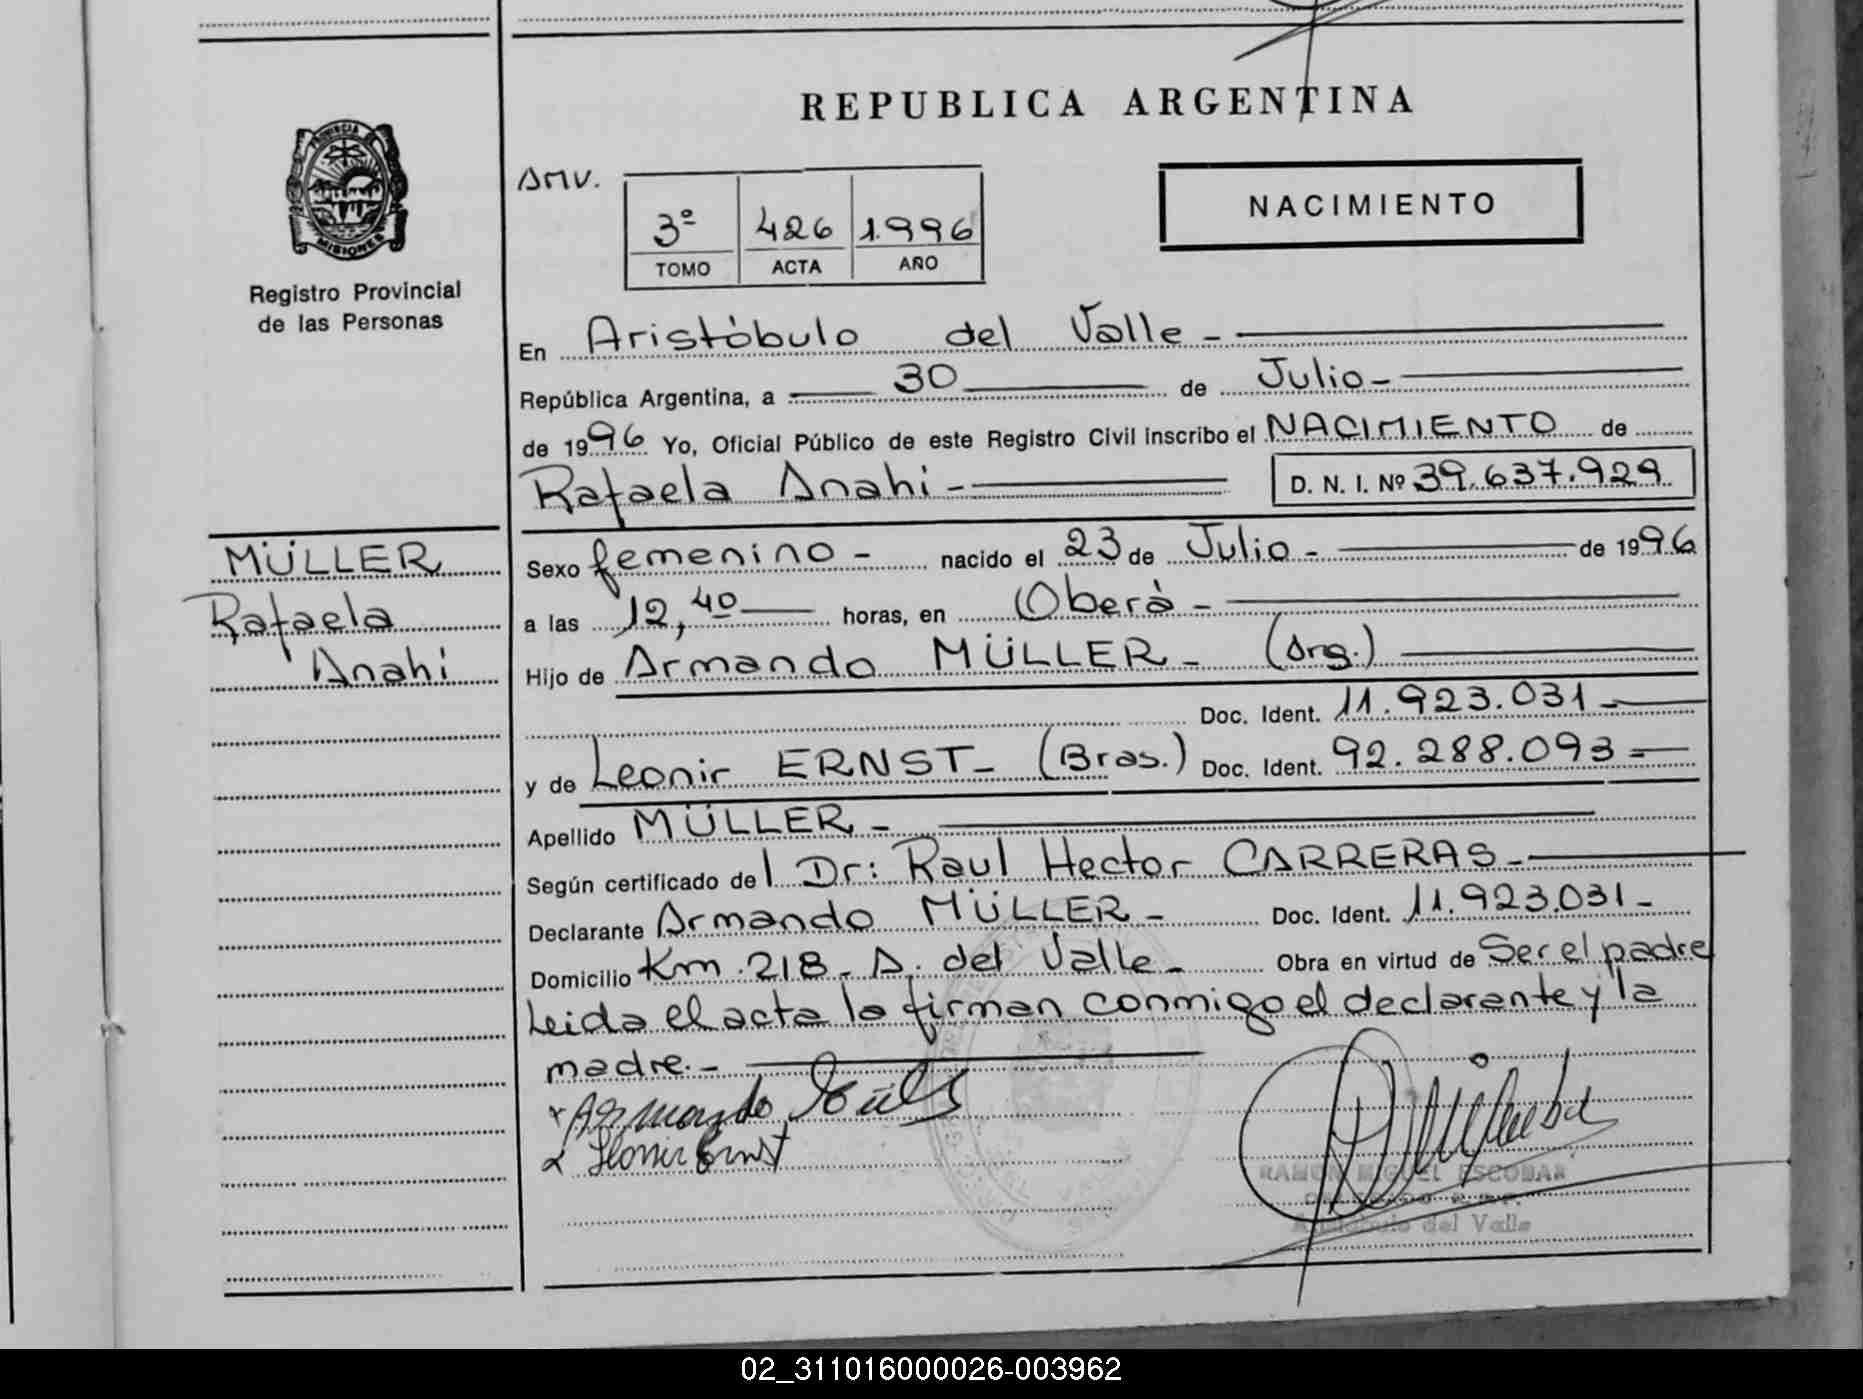 REPUBLICA ARGENTINA
PROVINCIA
MISIONES
Registro Provincial
de las Personas
AMV.
3º 426 1.996
TOMO ACTA AÑO
NACIMIENTO
En Aristóbulo del Valle -
República Argentina, a 30 de Julio -
de 1996 Yo, Oficial Público de este Registro Civil inscribo el NACIMIENTO de
Rafaela Anahi - D. N. I. Nº 39.637.929
MÜLLER
Rafaela
Anahi
Sexo femenino - nacido el 23 de Julio - de 1996
a las 12,40 horas, en Oberá -
Hijo de Armando MÜLLER - (Arg.)
Doc. Ident. 11.923.031 -
y de Leonir ERNST - (Bras.) Doc. Ident. 92.288.093 =
Apellido MÜLLER -
Según certificado del Dr: Raul Hector CARRERAS -
Declarante Armando MÜLLER - Doc. Ident. 11.923.031 -
Domicilio Km. 218 - A. del Valle - Obra en virtud de Ser el padre
Leida el acta la firman conmigo el declarante y la
madre. -
Armando
Leonir Ernst
RAMON MIGUEL ESCOBAR
Aristóbulo del Valle
02_311016000026-003962